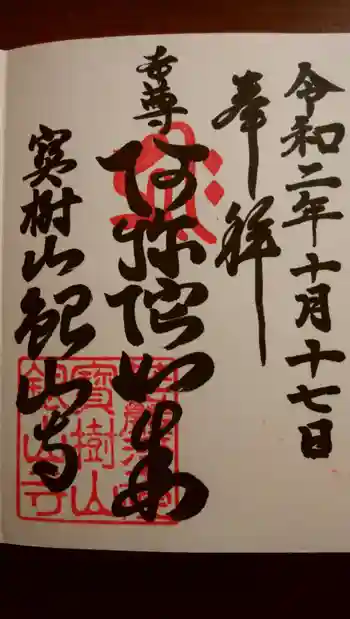 令和二年十月十七日
奉拝
本尊
阿弥陀如来
寳樹山銀山寺
寶樹山
銀山寺